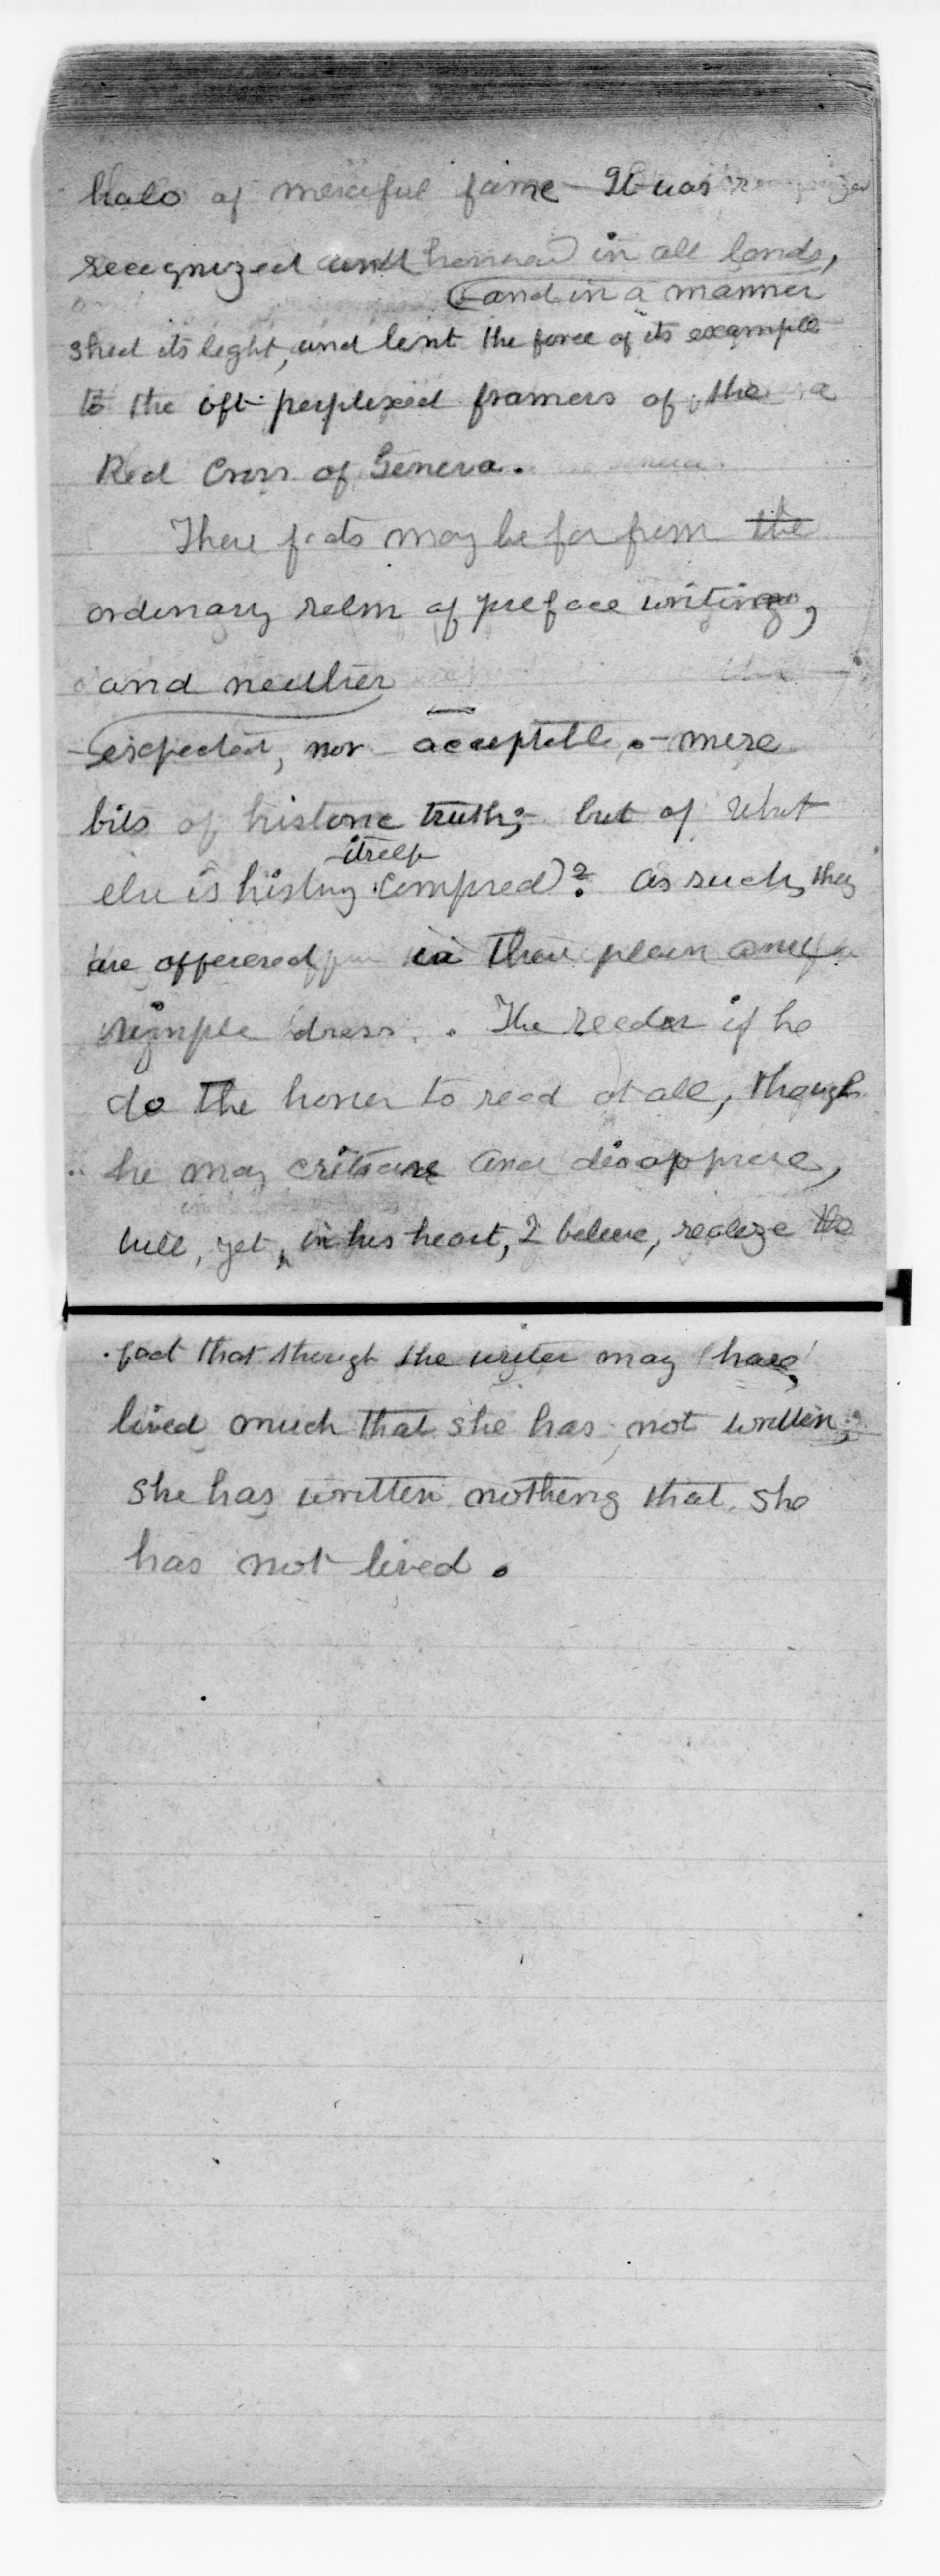 halo of merciful fame - It was
recognized and honored in all lands,
and in a manner
shed its light, and lent the force of its example
to the oft-perplexed framers of the
Red Cross of Geneva.
These facts may be far from the
ordinary relm of preface writing,
and neither
expected, nor acceptable, - mere
bits of historic truth; but of what
itself
else is history composed? as such, they
are offerered in their plain and
simple dress. The reader if he
do the honor to read at all, though
he may criticise and disapprove,
will, yet, in his heart, I believe, realize the
fact that though the writer may have
lived much that she has not written;
she has written nothing that she
has not lived.